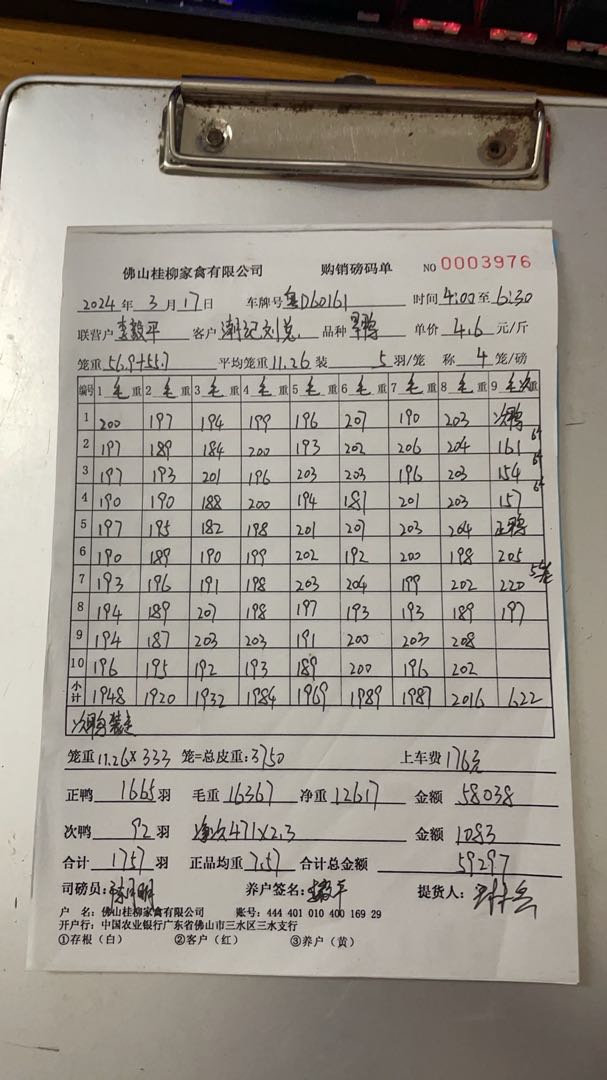 佛山桂柳家禽有限公司 购销磅码单 NO 0003976
2024 年 3 月 17 日 车牌号 粤D60161 时间 4:00 至 6:30
联营户 李毅平 客户 潮记刘兑 品种 单价 4.6 元/斤
笼重 56.9+55.7 平均笼重 11.26 装 5 羽/笼 称 4 笼/磅
编号 1 毛 重 2 毛 重 3 毛 重 4 毛 重 5 毛 重 6 毛 重 7 毛 重 8 毛 重 9 毛次 重
1 200 197 194 199 196 207 190 203 次鸭
2 197 189 184 200 193 202 206 204 161
3 197 193 201 196 203 203 196 203 154
4 190 190 188 200 194 181 201 203 157
5 197 195 182 198 201 207 203 204 正鸭
6 190 189 190 199 202 192 200 198 205
7 193 196 191 198 203 204 199 202 220 5笼
8 194 189 207 198 197 193 193 189 197
9 194 187 203 203 191 200 203 208
10 196 195 192 193 189 200 196 202
小计 1948 1920 1932 1984 1969 1989 1987 2016 622
次鸭装走
笼重 11.26×333 笼=总皮重: 3750 上车费 176元
正鸭 1665 羽 毛重 16367 净重 12617 金额 58038
次鸭 92 羽 净次471×2.3 金额 1083
合计 1757 羽 正品均重 7.57 合计总金额 59297
司磅员: 养户签名: 提货人:
户 名: 佛山桂柳家禽有限公司 账号: 444 401 010 400 169 29
开户行: 中国农业银行广东省佛山市三水区三水支行
①存根（白） ②客户（红） ③养户（黄）